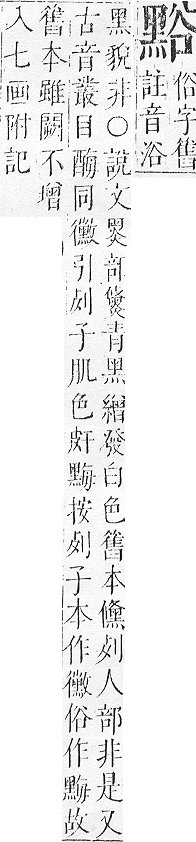 俗字舊
註音浴
黑貌非○說文黑部儵青黑繒發白色舊本儵列人部非是又
古音叢目酶同黴引列子肌色皯黣按列子本作黴俗作黣故
舊本雖闕不增
入七画附記